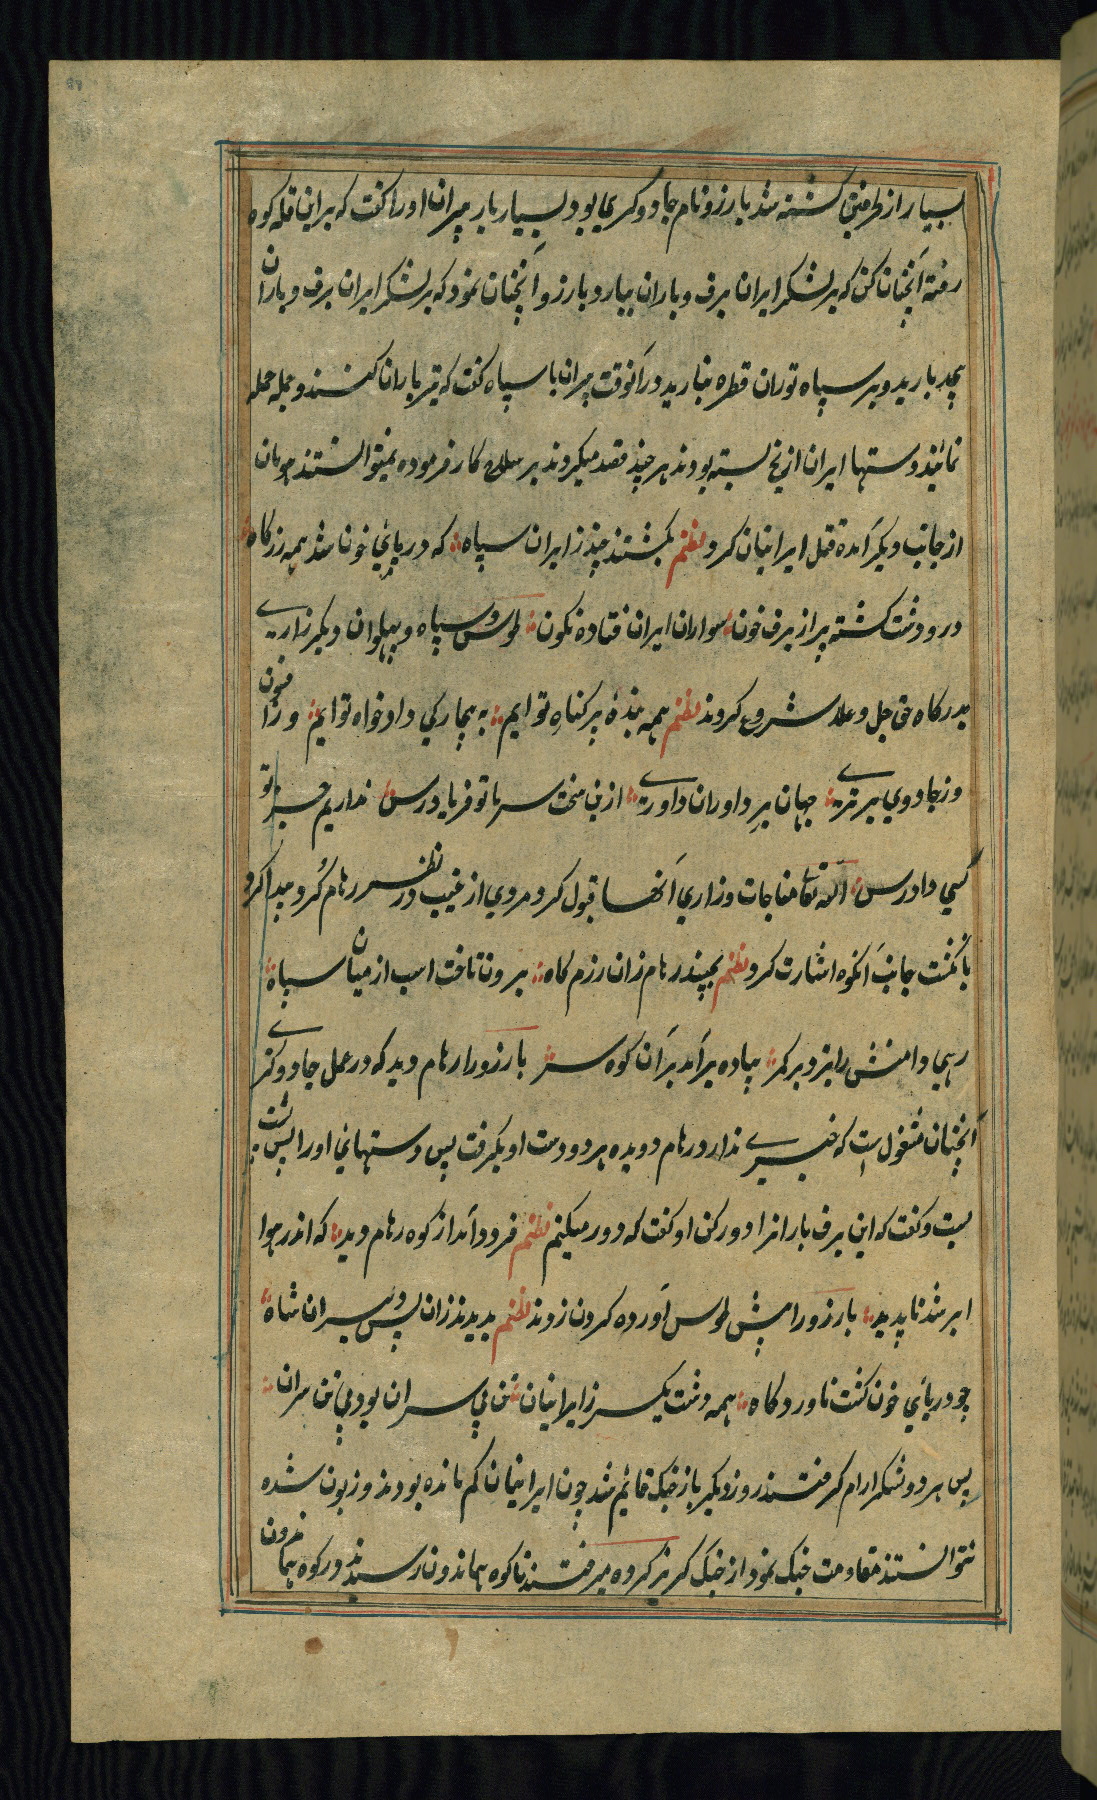 بسیار از طرفین کشته شد بارزو نام جادوگری بود بسیار بار پیران او را گفت که بر این قله کوه
رفته آنچنان کن که بر لشکر ایران برف و باران ببارد بارزو آنچنان نمود که بر لشکر ایران برف و باران
بیحد بارید و بر سپاه توران قطره نبارید در آنوقت پیران با سپاه گفت که تیر باران کنند و بجمله حمله
نمایند دستها ایران از یخ بسته بودند هر چند قصد میکردند بر سلاح کار فرموده نمیتوانستند هومان
از جانب دیگر آمده قتل ایرانیان کرد نظم بکشتند چند ز ایران سپاه که دریای خون شد همه رزمگاه
در و دشت کشته پر از برف خون سواران ایران فتاده نگون طوس و سپاه و پهلوان دیگر زاری
بدرگاه حق جل و علا شروع کردند نظم همه بندهٔ پر گناه تو ایم به بیچارگی داد خواه تو ایم ز افسون
وز جادوی برتری جهان بر داوران داوری ازین سخت سرما تو فریاد رس نداریم جز تو
کسی دادرس الله تعالی مناجات و زاری آنها قبول کرد مردی از غیب در نظر رهام گرد پیدا کرد
بانگشت جانب آنکوه اشارت کرد نظم بجنبید رهام زان رزم گاه برون تاخت اسب از میان سپاه
رهی دامنش را بزد بر کمر پیاده بر آمد بر آن کوه سر بارزو را رهام دید که در عمل جادوگری
آنچنان مشغول است که خبری ندارد رهام دویده هر دو دست او بگرفت پس دستهای او را پس پشت
بست و گفت که این برف باران را دور کن او گفت که دور میکنم نظم فرود آمد از کوه رهام دید که اندر هوا
ابر شد ناپدید بارزو را پیش طوس آورده گردن زدند نظم بدیدند زان پس دلیران شاه
چو دریای خون گشت ناورد گاه همه دشت یکسر ز ایرانیان تن بی سران بود بی تن سران
پس هر دو لشکر آرام گرفتند روز دیگر باز جنگ قائم شد چون ایرانیان کم مانده بودند و زبون شده
نتوانستند مقاومت جنگ نمود از جنگ گریز کرده میرفتند تا کوه هماون رسیدند در کوه هماون